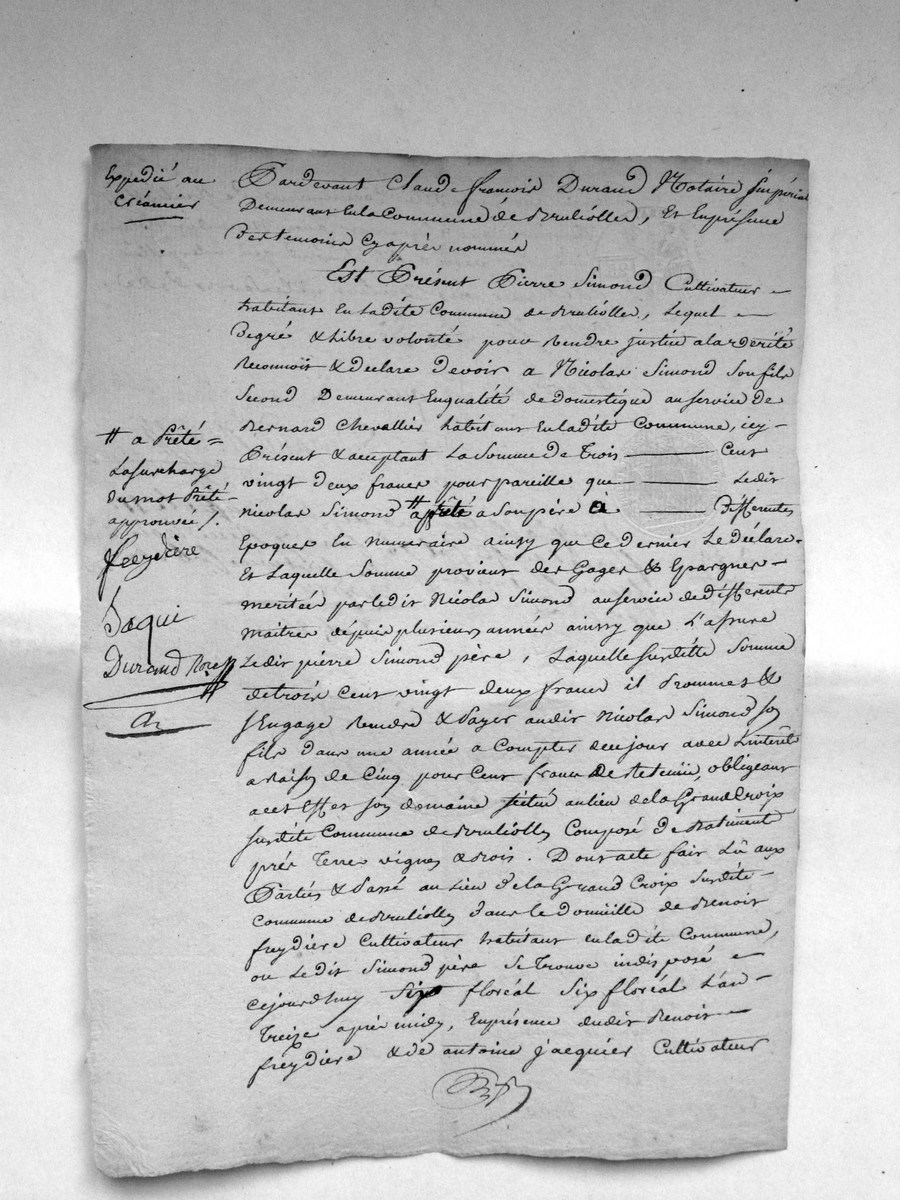 Expedié au
Créancier
Pardevant Claude françois Durand Notaire Impérial
Demeurant En la Commune de Brulliolles, Et En présence
Des temoins Cy après nommés
Est Présent Pierre Simond Cultivateur
habitant En Ladite Commune de Brulliolles, Lequel
De gré & Libre volonté pour Rendre justice a la vérité
Reconnois & declare devoir a Nicolas Simond Son fils
Second Demeurant En qualité de domestique au service de
Bernard Chevallier habitant En ladite Commune, icy
Présent & acceptant La Somme de Trois Cent
vingt deux francs pour pareille que Ledit
Nicolas Simond # a prêté a Son père à Differentes
Epoques En numeraire ainsy que Ce dernier Le déclare
Et Laquelle Somme provient des Gages & Epargnes
meritées par Ledit Nicolas Simond au service de differents
Maitres depuis plusieurs années ainsy que L'assure
Ledit pierre Simond père, Laquelle Susditte Somme
de trois Cent vingt deux francs il Prommet &
S'Engage Rendre & Payer audit Nicolas Simond Son
fils dans une année a Compter de ce jour avec L'intérêt
a raison de Cinq pour Cent franc de Retenüe, obligeant
a cet Effet Son domaine Scitué au lieu de la Grand Croix
Susdite Commune de Brulliolles Composé de Batiment
prés Terre vignes & Bois. Dont acte fait Lû aux
Parties & Passé au Lieu de la Grand Croix Susdite
Commune de Brulliolles dans le Domicille de Benoit
freydiere Cultivateur habitant en ladite Commune,
ou Ledit Simond père Se Trouve indisposé
Cejourdhuy Six floréal Six floréal L'an
Treize après midy, En présence dudit Benoit
freydiere & de antoine jacquier Cultivateur
# a Prêté
La surcharge
du mot Prêté
approuvée /.
freydiere
Jaqui
Durand Nore